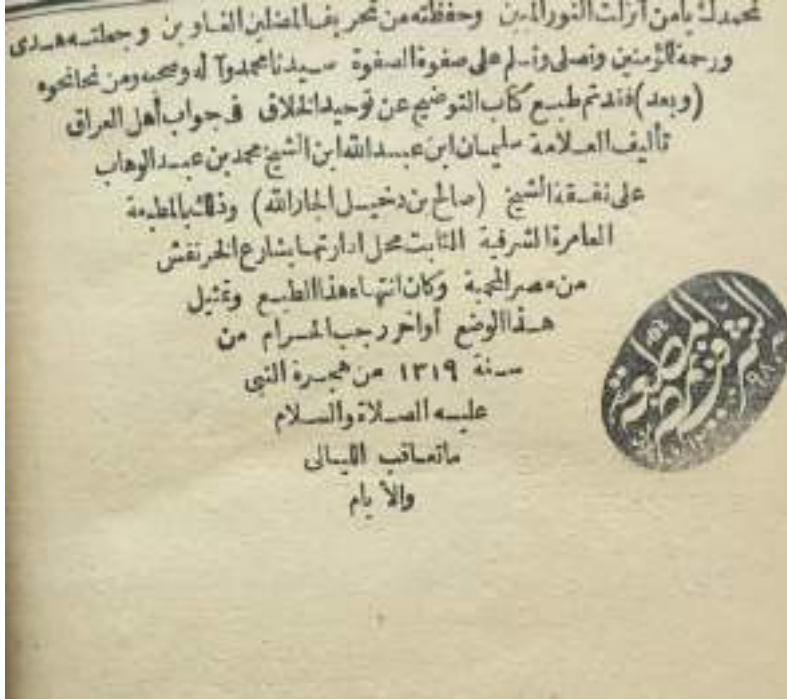 نحمدك يامن أنزلت النور المبين وحفظته من تحريف المضلين الغاوين وجعلته هدى
ورحمة للمؤمنين ونصلى ونسلم على صفوة الصفوة سيدنا محمد وآله وصحبه ومن نحا نحوه
(وبعد) فقد تم طبع كتاب التوضيح عن توحيد الخلاق فى جواب أهل العراق
تأليف العلامة سليمان ابن عبد الله ابن الشيخ محمد بن عبد الوهاب
على نفقة الشيخ (صالح بن دخيل الجار الله) وذلك بالمطبعة
العامرة الشرفية الثابت محل ادارتها بشارع الخرنفش
من مصر المحمية وكان انتهاء هذا الطبع وتمثيل
هذا الوضع أواخر رجب الحرام من
سنة ١٣١٩ من هجرة النبى
عليه الصلاة والسلام
ماتعاقب الليالى
والأيام
المطبعة
الشرفية